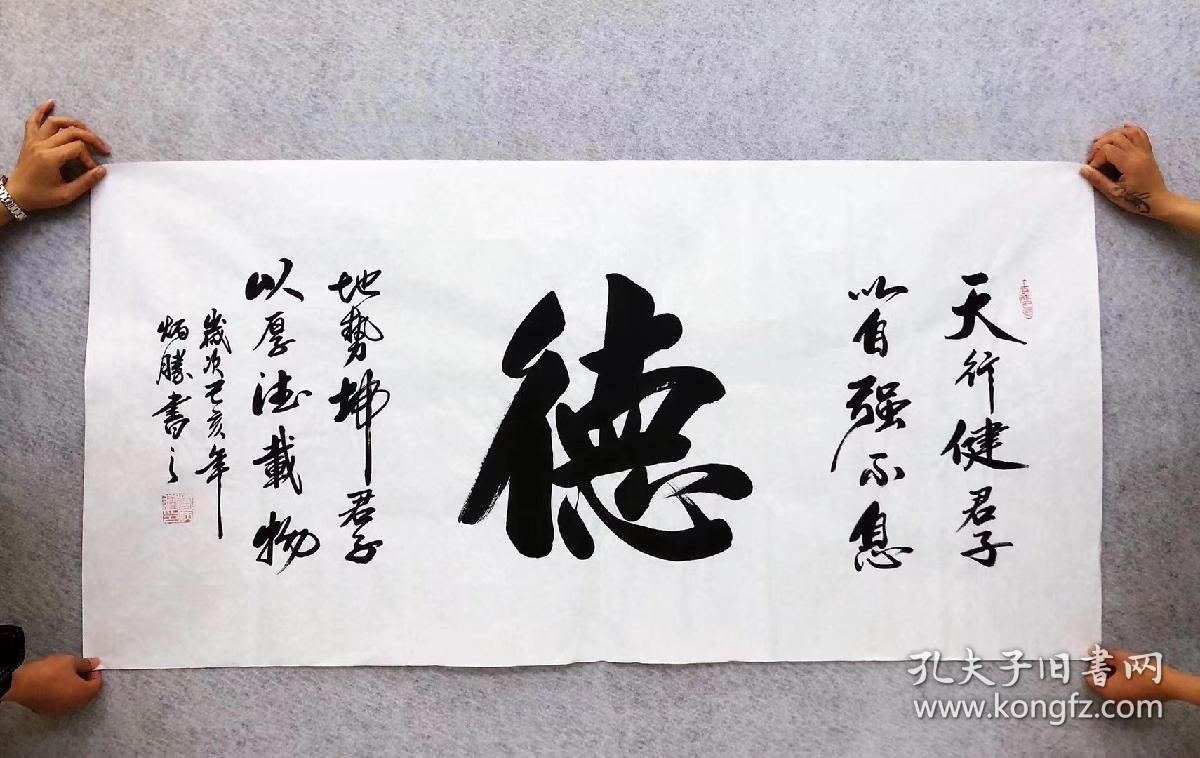 天行健君子
以自强不息
德
地势坤君子
以厚德載物
歲次己亥年
炳勝書之
孔夫子旧书网
www.kongfz.com